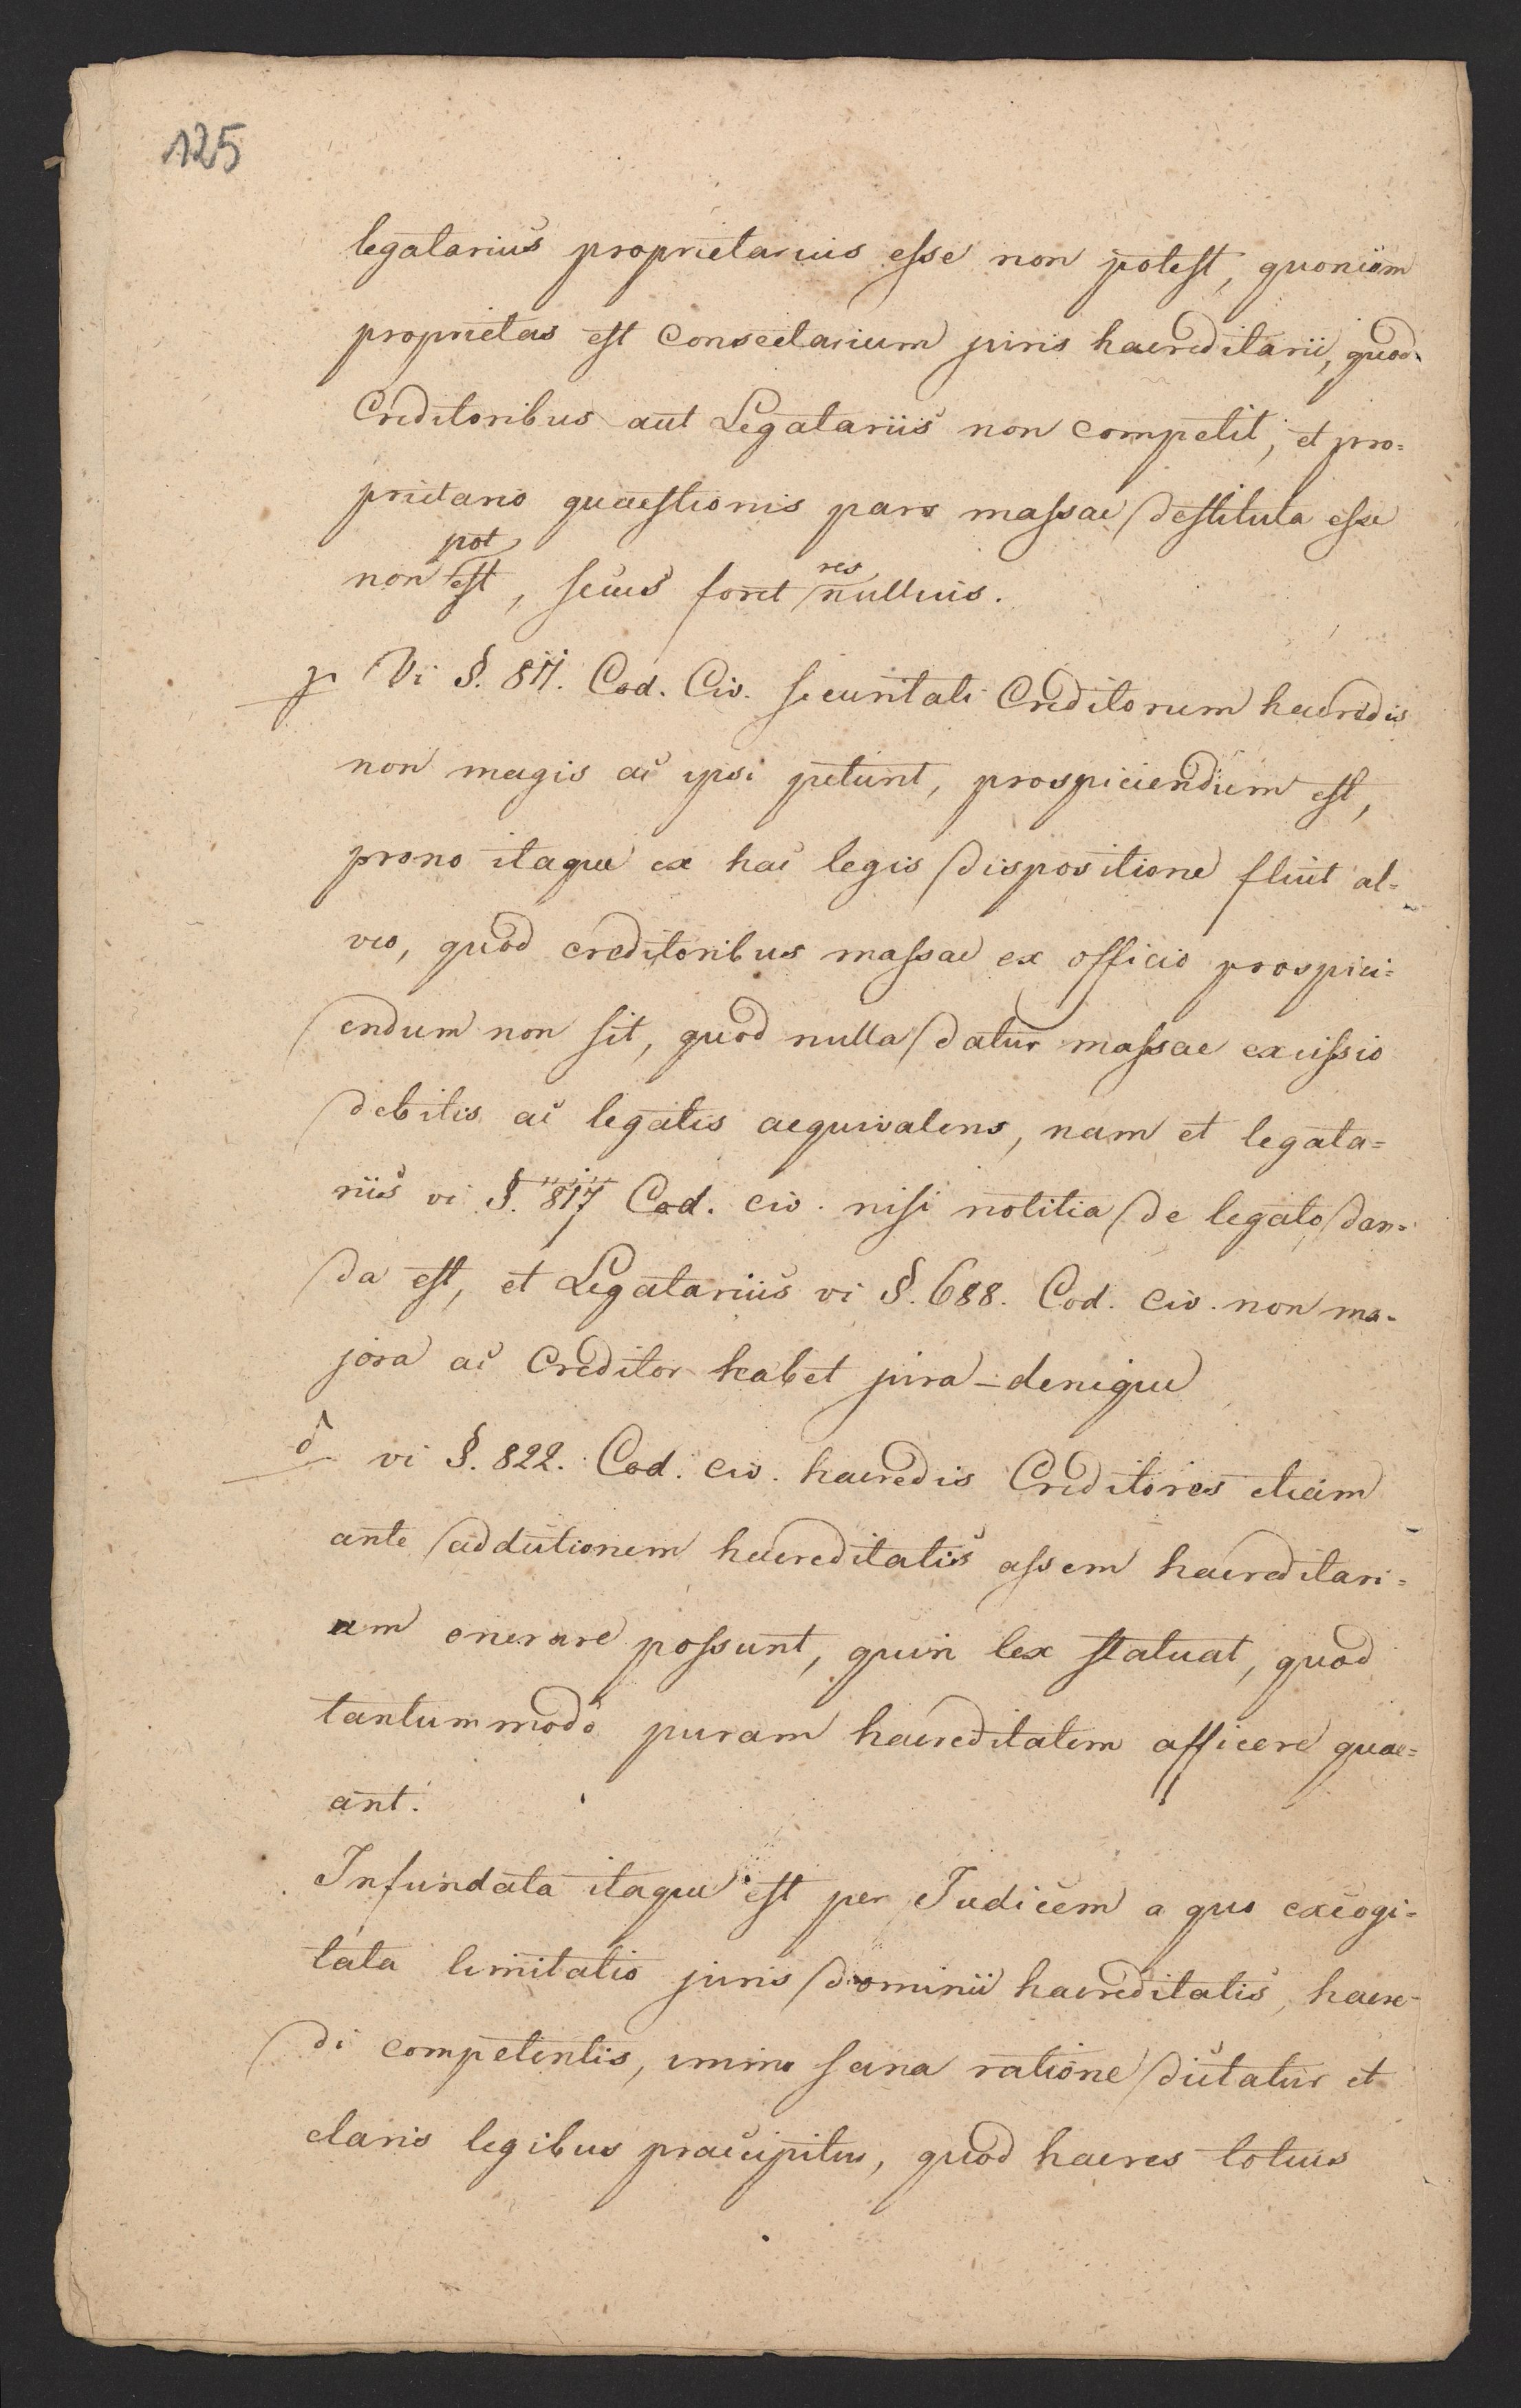 125
legatarius proprietarius esse non potest, quoniam
proprietas est consectarium juris haereditarii, quod
Creditoribus aut Legatariis non competit, et pro=
prietario quaestionis pars massae destituta esse
non potest, secus foret res nullius.
γ Vi §. 811. Cod. Civ. securitati Creditorum haeredis
non magis ac ipsi petunt, prospiciendum est,
prono itaque ex hac legis dispositione fluit al=
veo, quod creditoribus massae ex officio prospici=
endum non sit, quod nulla datur massae excissio
debitis ac legatis aequivalens, nam et legata=
riis vi §. 817 Cod. civ. nisi notitia de legato dan=
da est, et Legatarius vi §. 688. Cod. civ. non ma=
jora ac Creditor habet jura – denique
δ vi §. 822. Cod. civ. haeredis Creditores etiam
ante additionem haereditatis assem haereditari=
um onerare possunt, quin lex statuat, quod
tantummodo puram haereditatem afficere quae=
ant.
Infundata itaque est per Judicem a quo excogi=
tata limitatio juris dominii haereditatis, haere=
di competentis, immo sana ratione dictatur et
claris legibus praecipitur, quod haeres totius